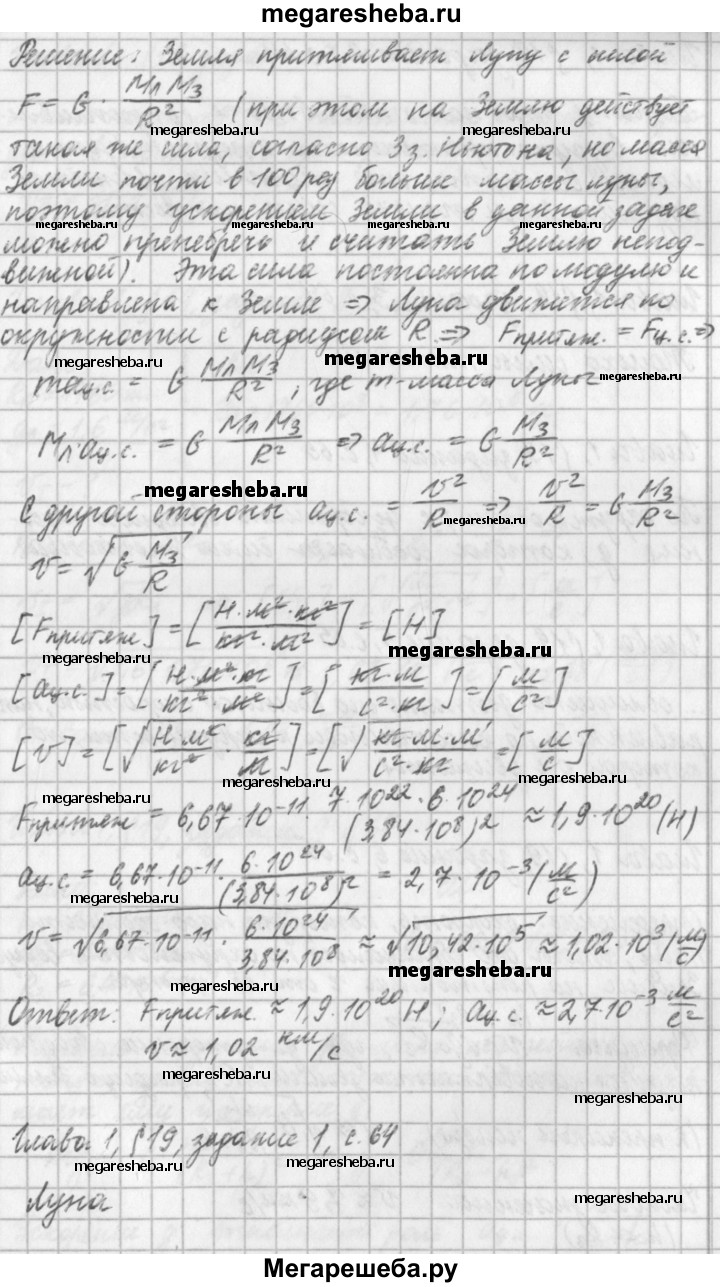 megaresheba.ru
Решение: Земля притягивает Луну с силой
F = G · Mл Mз / R² (при этом на Землю действует
megaresheba.ru megaresheba.ru
такая же сила, согласно 3 з. Ньютона, но масса
Земли почти в 100 раз больше массы луны,
megaresheba.ru
поэтому ускорением Земли в данной задаче
megaresheba.ru megaresheba.ru megaresheba.ru
можно пренебречь и считать Землю непод-
вижной). Эта сила постоянна по модулю и
направлена к Земле => Луна движется по
окружности с радиусом R => Fпритяж. = Fц.с. =>
megaresheba.ru megaresheba.ru
maц.с. = G Mл Mз / R², где m - масса Луны
megaresheba.ru
Mл·aц.с. = G Mл Mз / R² => aц.с. = G Mз / R²
megaresheba.ru
С другой стороны aц.с. = v² / R => v² / R = G Mз / R²
megaresheba.ru
v = √(G Mз / R)
[Fпритяж.] = [Н·м²·кг² / кг²·м²] = [Н]
megaresheba.ru
[aц.с.] = [Н·м²·кг / кг²·м²] = [кг·м / с²·кг] = [м / с²]
[v] = [√(Н·м² / кг² · кг / м)] = [√(кг·м·м / с²·кг)] = [м / с]
megaresheba.ru
megaresheba.ru
Fпритяж = 6,67·10⁻¹¹ · 7·10²²·6·10²⁴ / (3,84·10⁸)² ≈ 1,9·10²⁰ (Н)
aц.с. = 6,67·10⁻¹¹ · 6·10²⁴ / (3,84·10⁸)² = 2,7·10⁻³ (м / с²)
megaresheba.ru
v = √(6,67·10⁻¹¹ · 6·10²⁴ / 3,84·10⁸) ≈ √(10,42·10⁵) ≈ 1,02·10³ (м / с)
megaresheba.ru
megaresheba.ru
Ответ: Fпритяж. ≈ 1,9·10²⁰ Н; aц.с. ≈ 2,7·10⁻³ м / с²
megaresheba.ru
v ≈ 1,02 км/с
megaresheba.ru
Глава 1, §19, задание 1, с. 64
megaresheba.ru megaresheba.ru
Луна
megaresheba.ru
Мегарешеба.ру